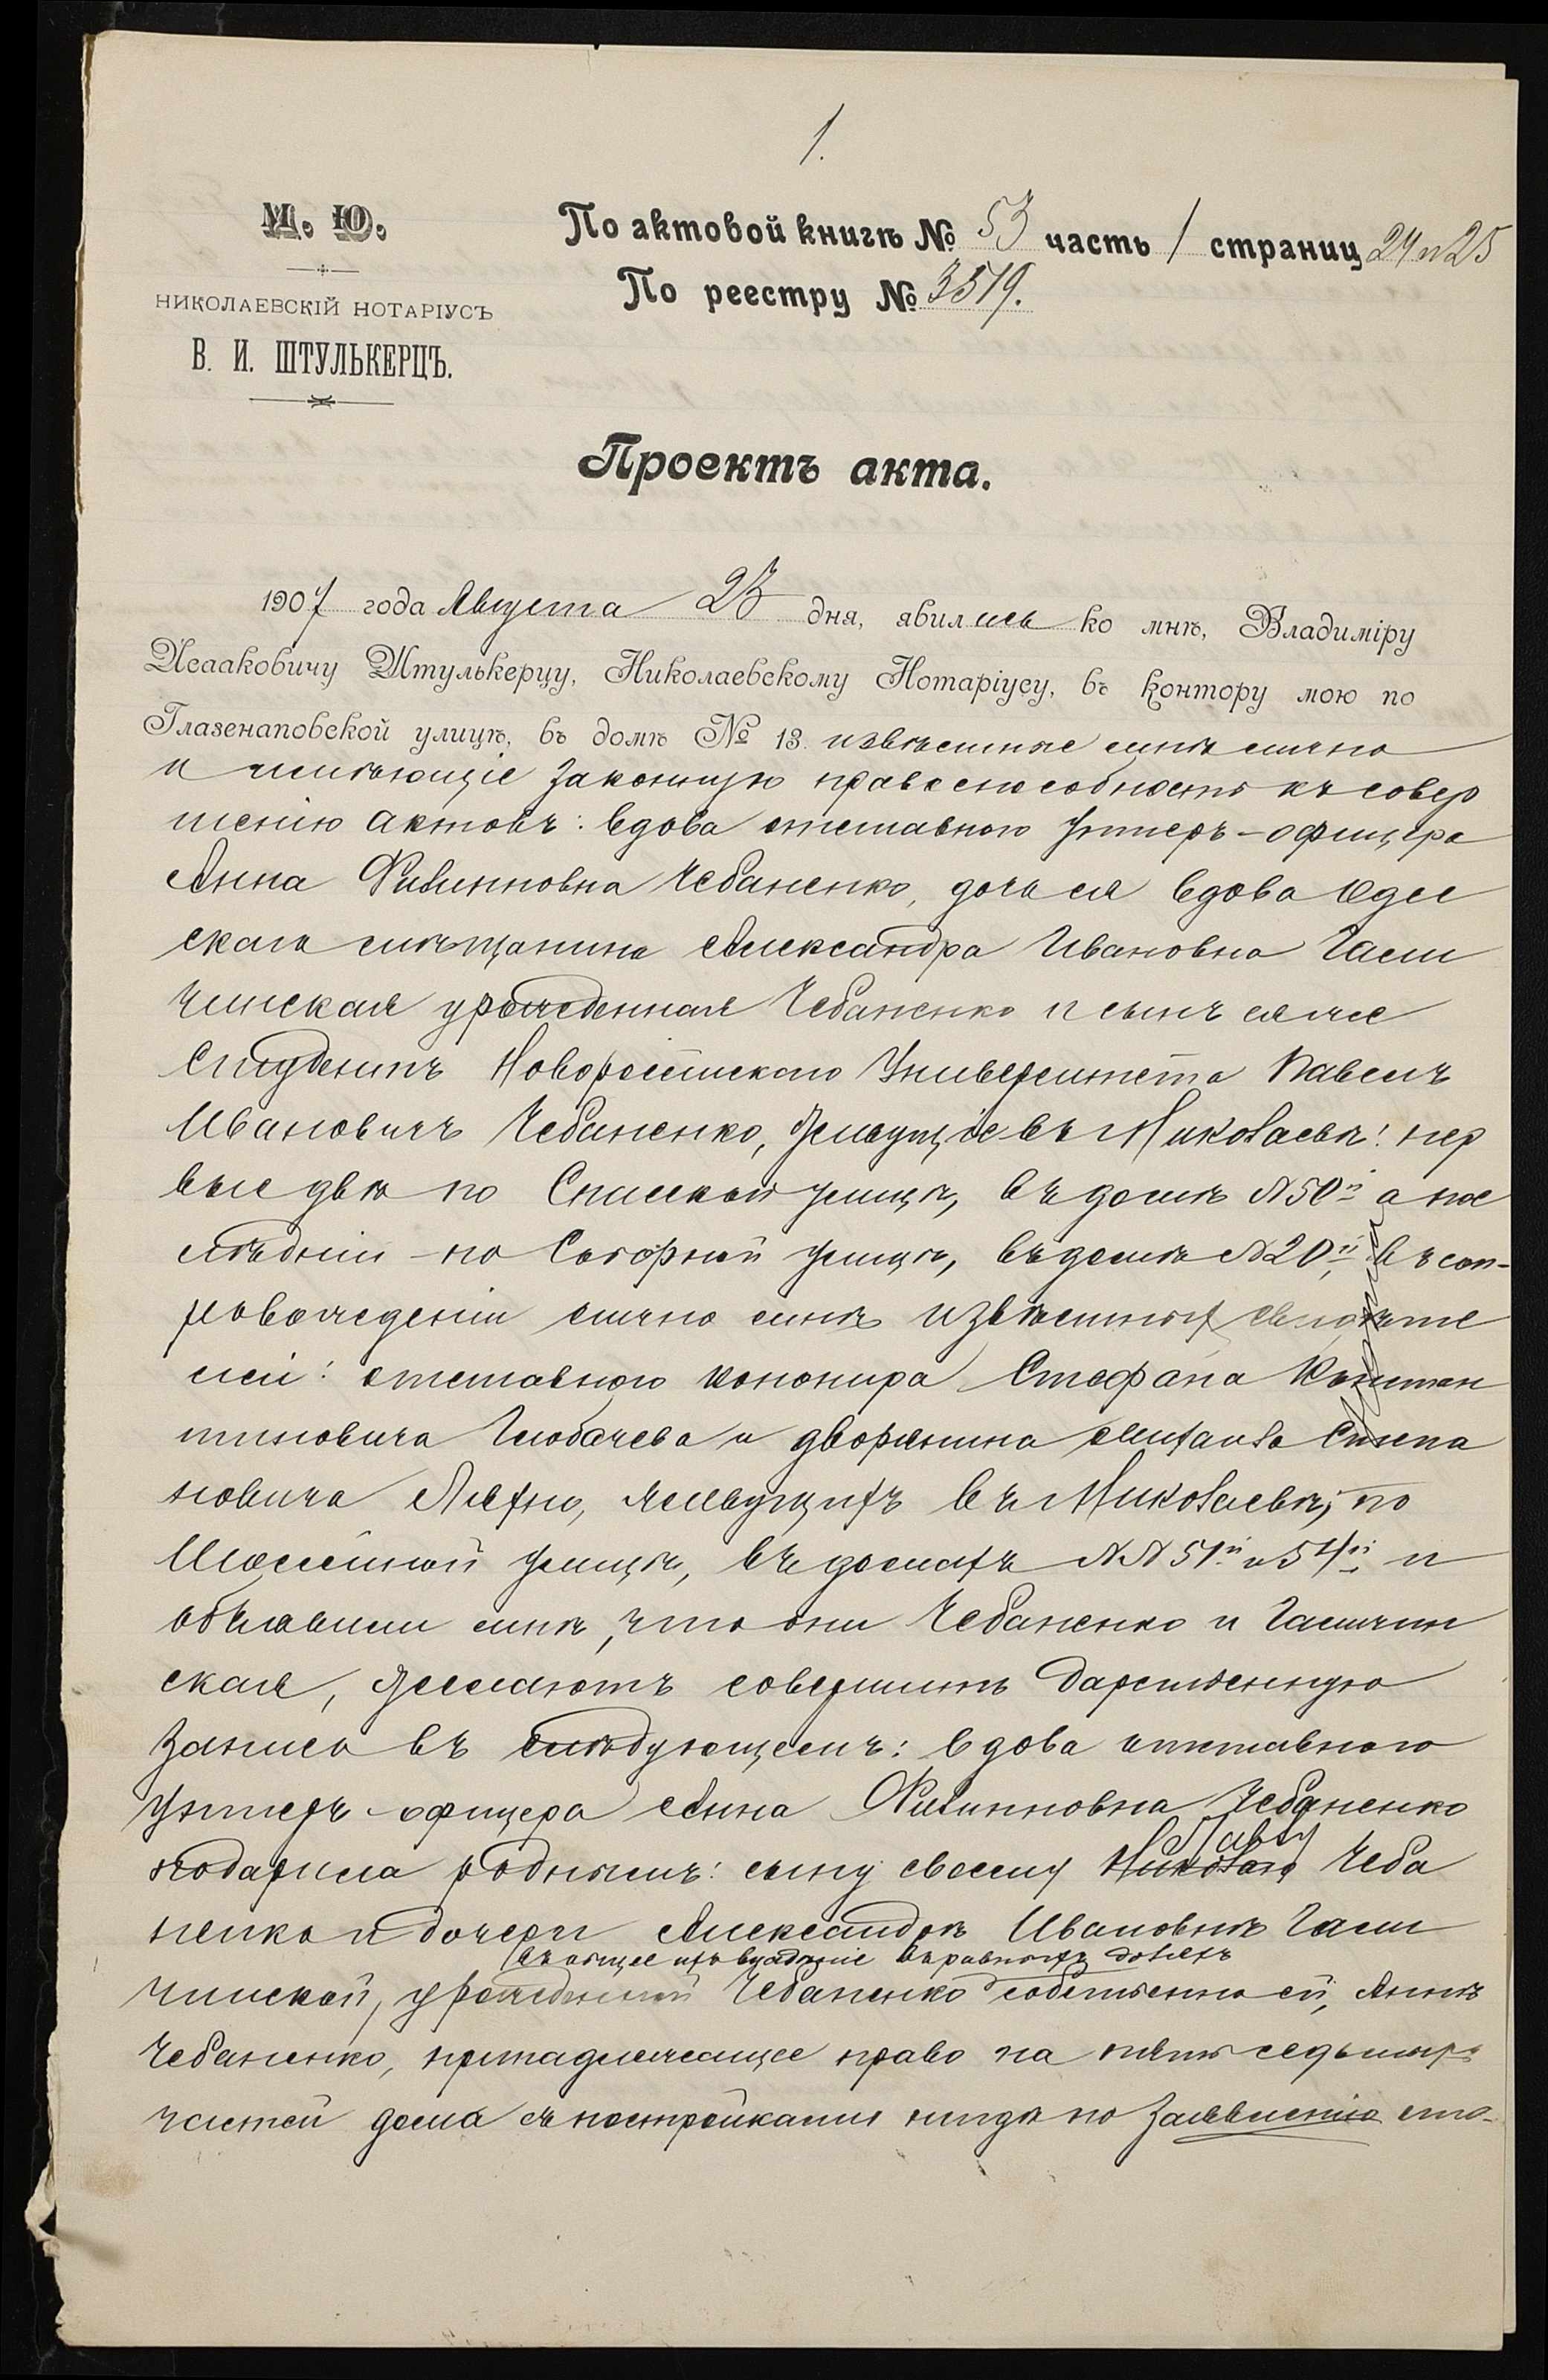 1.
М. Ю.
НИКОЛАЕВСКІЙ НОТАРІУСЪ
В. И. ШТУЛЬКЕРЦЪ.
По актовой книгѣ № 53 часть 1 страниц 24 и 25
По реестру № 3519.
Проектъ акта.
1907 года Августа 23 дня, явились ко мнѣ, Владиміру
Исааковичу Штулькерцу, Николаевскому Нотаріусу, въ контору мою по
Глазенаповской улицѣ, въ домѣ № 13 извѣстные мнѣ лично
и имѣющіе законную правоспособность къ совер
шенію актовъ: вдова отставного унтеръ-офицера
Анна Филипповна Чебаненко, дочь ея вдова Одес
скаго мѣщанина Александра Ивановна Гаси
чинская урожденная Чебаненко и сынъ ея же
Студентъ Новороссійскаго Университета Павелъ
Ивановичъ Чебаненко, живущіе въ Николаевѣ: пер
выя двѣ по Спасской улицѣ, въ домѣ № 50й а по
слѣдній - по Соборной улицѣ, въ домѣ № 20й, въ соп-
ровожденіи лично мнѣ извѣстныхъ свидѣте
лей: отставного канонира Стефана Констан
тиновича Глобачева и дворянина Михаила Степа
новича живущихъ въ Николаевѣ, по
Шоссейной улицѣ, въ домахъ №№ 51й и 54й и
объявили мнѣ, что они Чебаненко и Гасичин
ская, желаютъ совершить дарственную
запись въ слѣдующемъ: вдова отставного
унтеръ-офицера Анна Филипповна Чебаненко
Павлу
подарила роднымъ: сыну своему Николаю Чеба
ненко и дочери Александрѣ Ивановнѣ Гаси
въ общее ихъ владѣніе въ равныхъ доляхъ
чинской, урожденной Чебаненко собственно ей, Аннѣ
Чебаненко, принадлежащее право на пять седьмыхъ
частей дома съ постройками нигдѣ по заявленію сто-